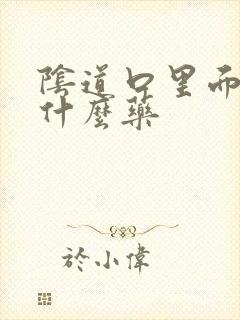 陰道口里而
什麼藥
於小偉